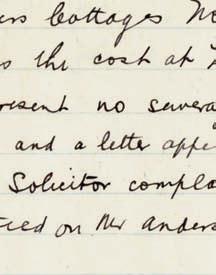 ers Cottages
the cost at
resent no severa
and a letter appe
Solicitor compla
ed on Mr anders